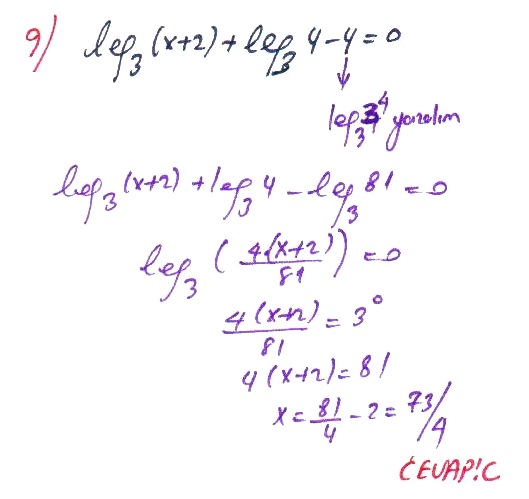 9) log₃(x+2) + log₃4 - 4 = 0
log₃3⁴ yazalım
log₃(x+2) + log₃4 - log₃81 = 0
log₃(4(x+2)/81) = 0
4(x+2)/81 = 3⁰
4(x+2) = 81
x = 81/4 - 2 = 73/4
CEVAP: C